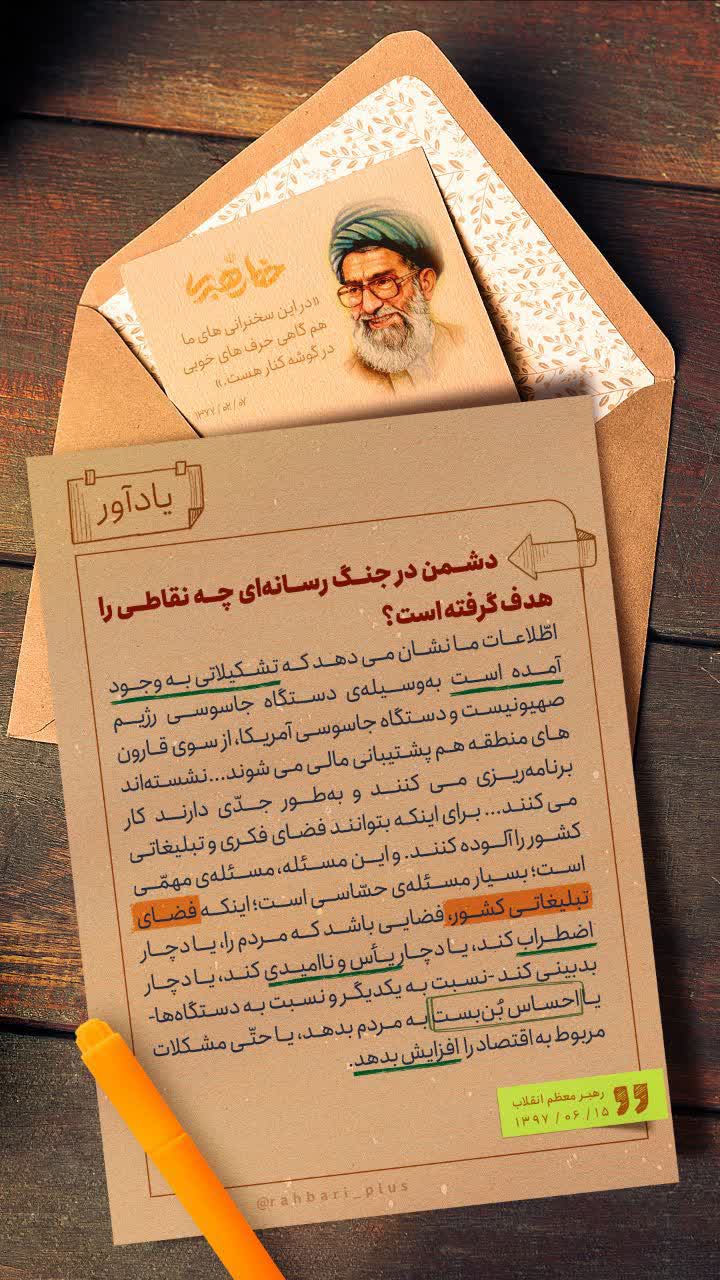 «در این سخنرانی های ما
هم گاهی حرف های خوبی
در گوشه کنار هست.»
۱۳۷۷ / ۰۲ / ۰۷
یادآور
دشمن در جنگ رسانه‌ای چه نقاطی را
هدف گرفته است؟
اطّلاعات ما نشان می دهد که تشکیلاتی به وجود
آمده است به‌وسیله‌ی دستگاه جاسوسی رژیم
صهیونیست و دستگاه جاسوسی آمریکا، از سوی قارون
های منطقه هم پشتیبانی مالی می شوند... نشسته‌اند
برنامه‌ریزی می کنند و به‌طور جدّی دارند کار
می کنند... برای اینکه بتوانند فضای فکری و تبلیغاتی
کشور را آلوده کنند. و این مسئله، مسئله‌ی مهمّی
است؛ بسیار مسئله‌ی حسّاسی است؛ اینکه فضای
تبلیغاتی کشور، فضایی باشد که مردم را، یا دچار
اضطراب کند، یا دچار یأس و ناامیدی کند، یا دچار
بدبینی کند -نسبت به یکدیگر و نسبت به دستگاه‌ها-
یا احساس بُن‌بست به مردم بدهد، یا حتّی مشکلات
مربوط به اقتصاد را افزایش بدهد.
رهبر معظم انقلاب
۱۳۹۷ / ۰۶ / ۱۵
@rahbari_plus